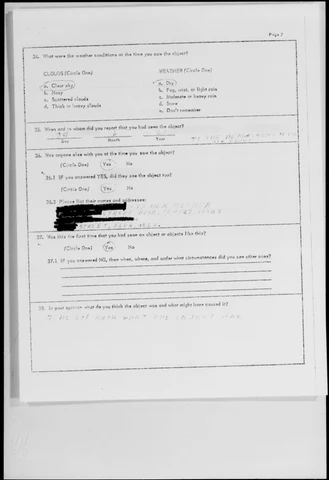 Page 7
34. What were the weather conditions at the time you saw the object?
CLOUDS (Circle One)
WEATHER (Circle One)
a. Clear sky
b. Hazy
c. Scattered clouds
d. Thick or heavy clouds
a. Dry
b. Fog, mist, or light rain
c. Moderate or heavy rain
d. Snow
e. Don't remember
35. When and to whom did you report that you had seen the object?
Day Month Year
36. Was anyone else with you at the time you saw the object?
(Circle One) Yes No
36.1 IF you answered YES, did they see the object too?
(Circle One) Yes No
36.2 Please list their names and addresses:
STREET
37. Was this the first time that you had seen an object or objects like this?
(Circle One) Yes No
37.1 IF you answered NO, then when, where, and under what circumstances did you see other ones?
38. In your opinion what do you think the object was and what might have caused it?
I DO NOT KNOW WHAT THE OBJECT WAS